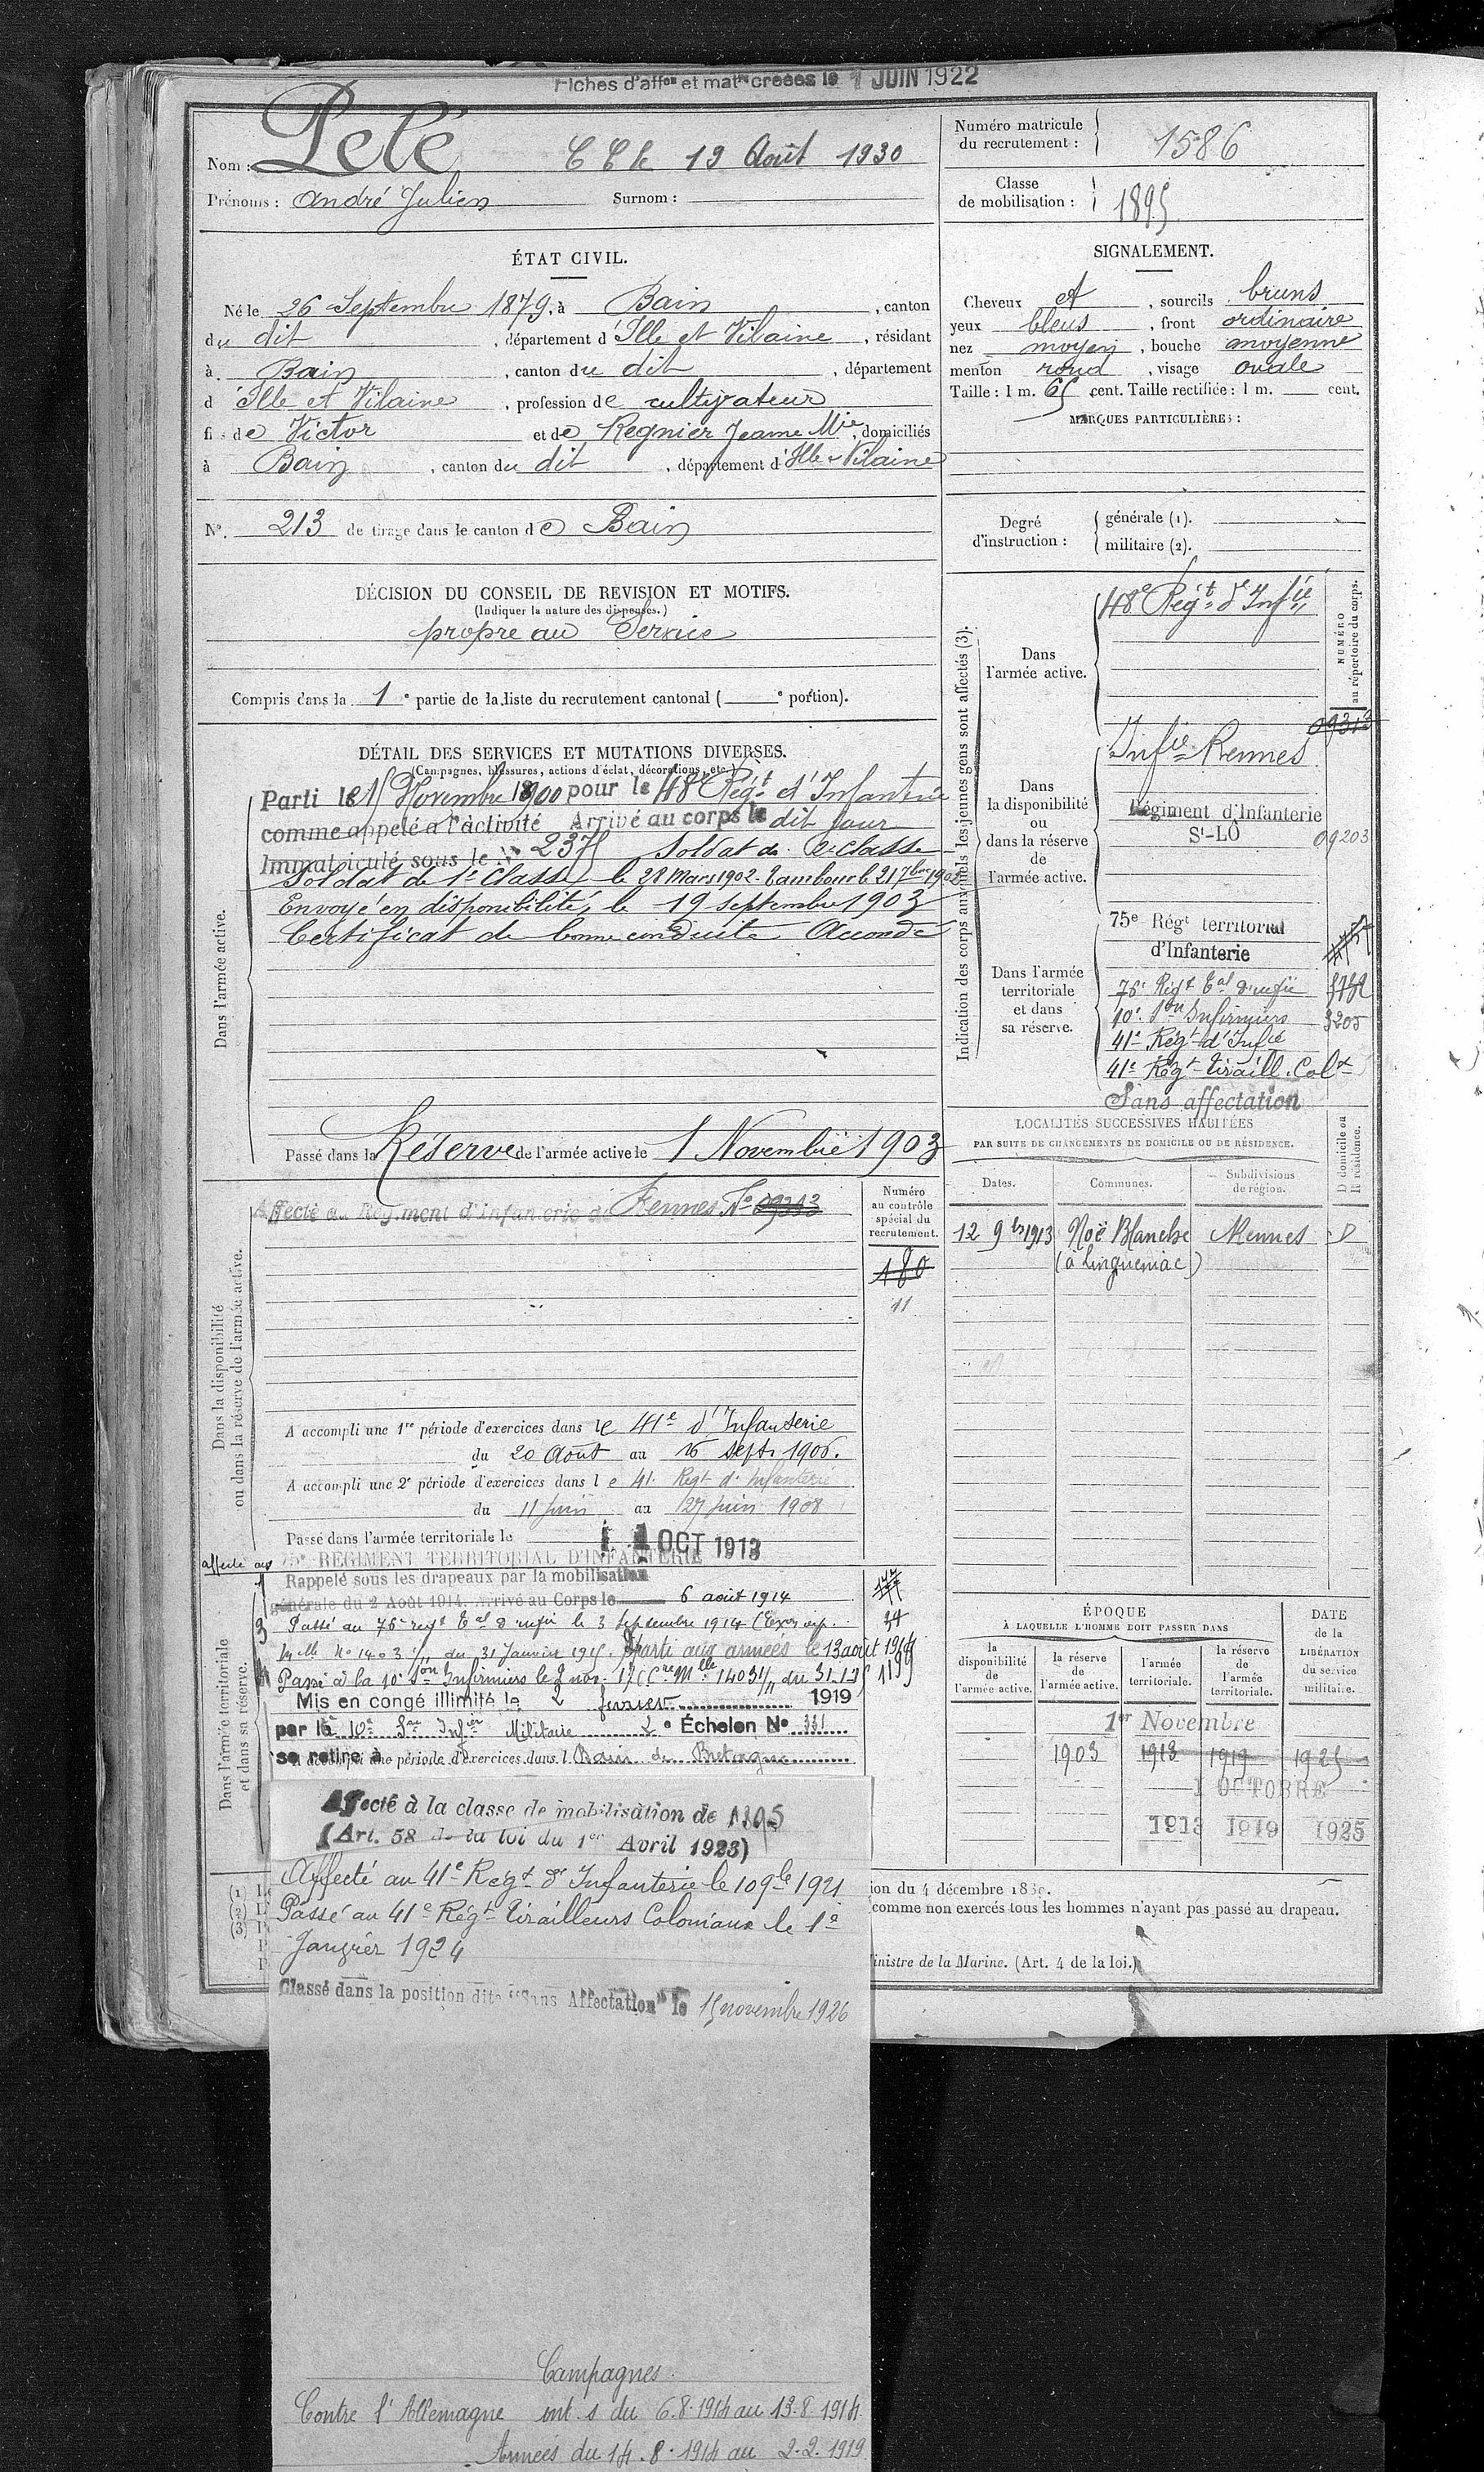 Fiches d'aff.on et mat.le créées le 1 JUIN 1922
Nom : Pelé
19 Août 1930
Prénoms : André Julien Surnom :
Numéro matricule du recrutement : 1586
Classe de mobilisation : 1895
ÉTAT CIVIL.
Né le 26 Septembre 1879, à Bain, canton
du dit, département d'Ille et Vilaine, résidant
à Bain, canton du dit, département
d'Ille et Vilaine, profession de cultivateur
fils de Victor et de Regnier Jeanne Mie, domiciliés
à Bain, canton du dit, département d'Ille & Vilaine
N°. 213 de tirage dans le canton de Bain
SIGNALEMENT.
Cheveux et, sourcils bruns
yeux bleus, front ordinaire
nez moyen, bouche moyenne
menton rond, visage ovale
Taille : 1 m. 65 cent. Taille rectifiée : 1 m. cent.
MARQUES PARTICULIÈRES :
Degré d'instruction : générale (1).
militaire (2).
DÉCISION DU CONSEIL DE REVISION ET MOTIFS.
(Indiquer la nature des dispenses.)
propre au Service
Compris dans la 1e partie de la liste du recrutement cantonal ( e portion).
DÉTAIL DES SERVICES ET MUTATIONS DIVERSES.
(Campagnes, blessures, actions d'éclat, décorations, etc.)
Dans l'armée active.
Parti le 15 Novembre 1900 pour le 48e Régt d'Infanterie
comme appelé à l'activité Arrivé au corps le dit jour
Immatriculé sous le n° 2375 Soldat de 2e classe
Soldat de 1e Classe le 28 Mars 1902. Tambour le 21 7bre 1902
Envoyé en disponibilité, le 19 septembre 1903
Certificat de bonne conduite Accordé
Passé dans la Réserve de l'armée active le 1 Novembre 1903
Indication des corps auxquels les jeunes gens sont affectés (3).
NUMÉRO au répertoire du corps.
Dans l'armée active.
48e Régt d'Infie
Dans la disponibilité ou dans la réserve de l'armée active.
09313
Infie Rennes
Régiment d'Infanterie
St-LÔ 09203
Dans l'armée territoriale et dans sa réserve.
75e Régt territorial
d'Infanterie
76e Régt Tal d'infie
10e Son Infirmiers 3205
41e Régt d'Infie
41e Régt Tiraill. Colx
Sans affectation
LOCALITÉS SUCCESSIVES HABITÉES
PAR SUITE DE CHANGEMENTS DE DOMICILE OU DE RÉSIDENCE.
Dates. Communes. Subdivisions de région. D domicile ou R résidence.
12 9bre 1913 Noë Blanche Rennes D
Dans la disponibilité ou dans la réserve de l'armée active.
Affecté au Régiment d'infanterie de Rennes N° 09313
Numéro au contrôle spécial du recrutement.
180
11
A accompli une 1re période d'exercices dans le 41e d'Infanterie
du 20 Août au 16 sept. 1906.
A accompli une 2e période d'exercices dans le 41. Régt d'Infanterie
du 11 juin au 27 juin 1908
Passé dans l'armée territoriale le 1 OCT 1913
affecté au 75e RÉGIMENT TERRITORIAL D'INFANTERIE
Dans l'armée territoriale et dans sa réserve.
Rappelé sous les drapeaux par la mobilisation
générale du 2 Août 1914. Arrivé au Corps le 6 août 1914
Passé au 76e régt Tal d'infie le 3 septembre 1914
Mlle N° 1403 1/11 du 31 Janvier 1915. Parti aux armées le 13 août 1914
Passé à la 10e Son Infirmiers le 2 nov. 17 (Cre Mlle 14031/11 du 31.1.15
Mis en congé illimité le 2 février 1919
par la 10e Son Infier Militaire 2e Échelon N° 331
se retire à Bain de Bretagne
A accompli une période d'exercices dans l
Affecté à la classe de mobilisation de 1895
(Art. 58 de la loi du 1er Avril 1923)
Affecté au 41e Régt d'Infanterie le 10 9bre 1921
Passé au 41e Régt Tirailleurs Coloniaux le 1e
Janvier 1924
Classé dans la position dite "Sans Affectation" le 15 novembre 1926
ÉPOQUE
À LAQUELLE L'HOMME DOIT PASSER DANS
DATE de la LIBÉRATION du service militaire.
la disponibilité de l'armée active. la réserve de l'armée active. l'armée territoriale. la réserve de l'armée territoriale.
1er Novembre
1903 1913 1919 1925
1 OCTOBRE
1913 1919 1925
(1)
(2)
(3)
ion du 4 décembre 1889.
comme non exercés tous les hommes n'ayant pas passé au drapeau.
inistre de la Marine. (Art. 4 de la loi.)
Campagnes.
Contre l'Allemagne int. s du 6.8.1914 au 13.8.1914.
Armées du 14.8.1914 au 2.2.1919